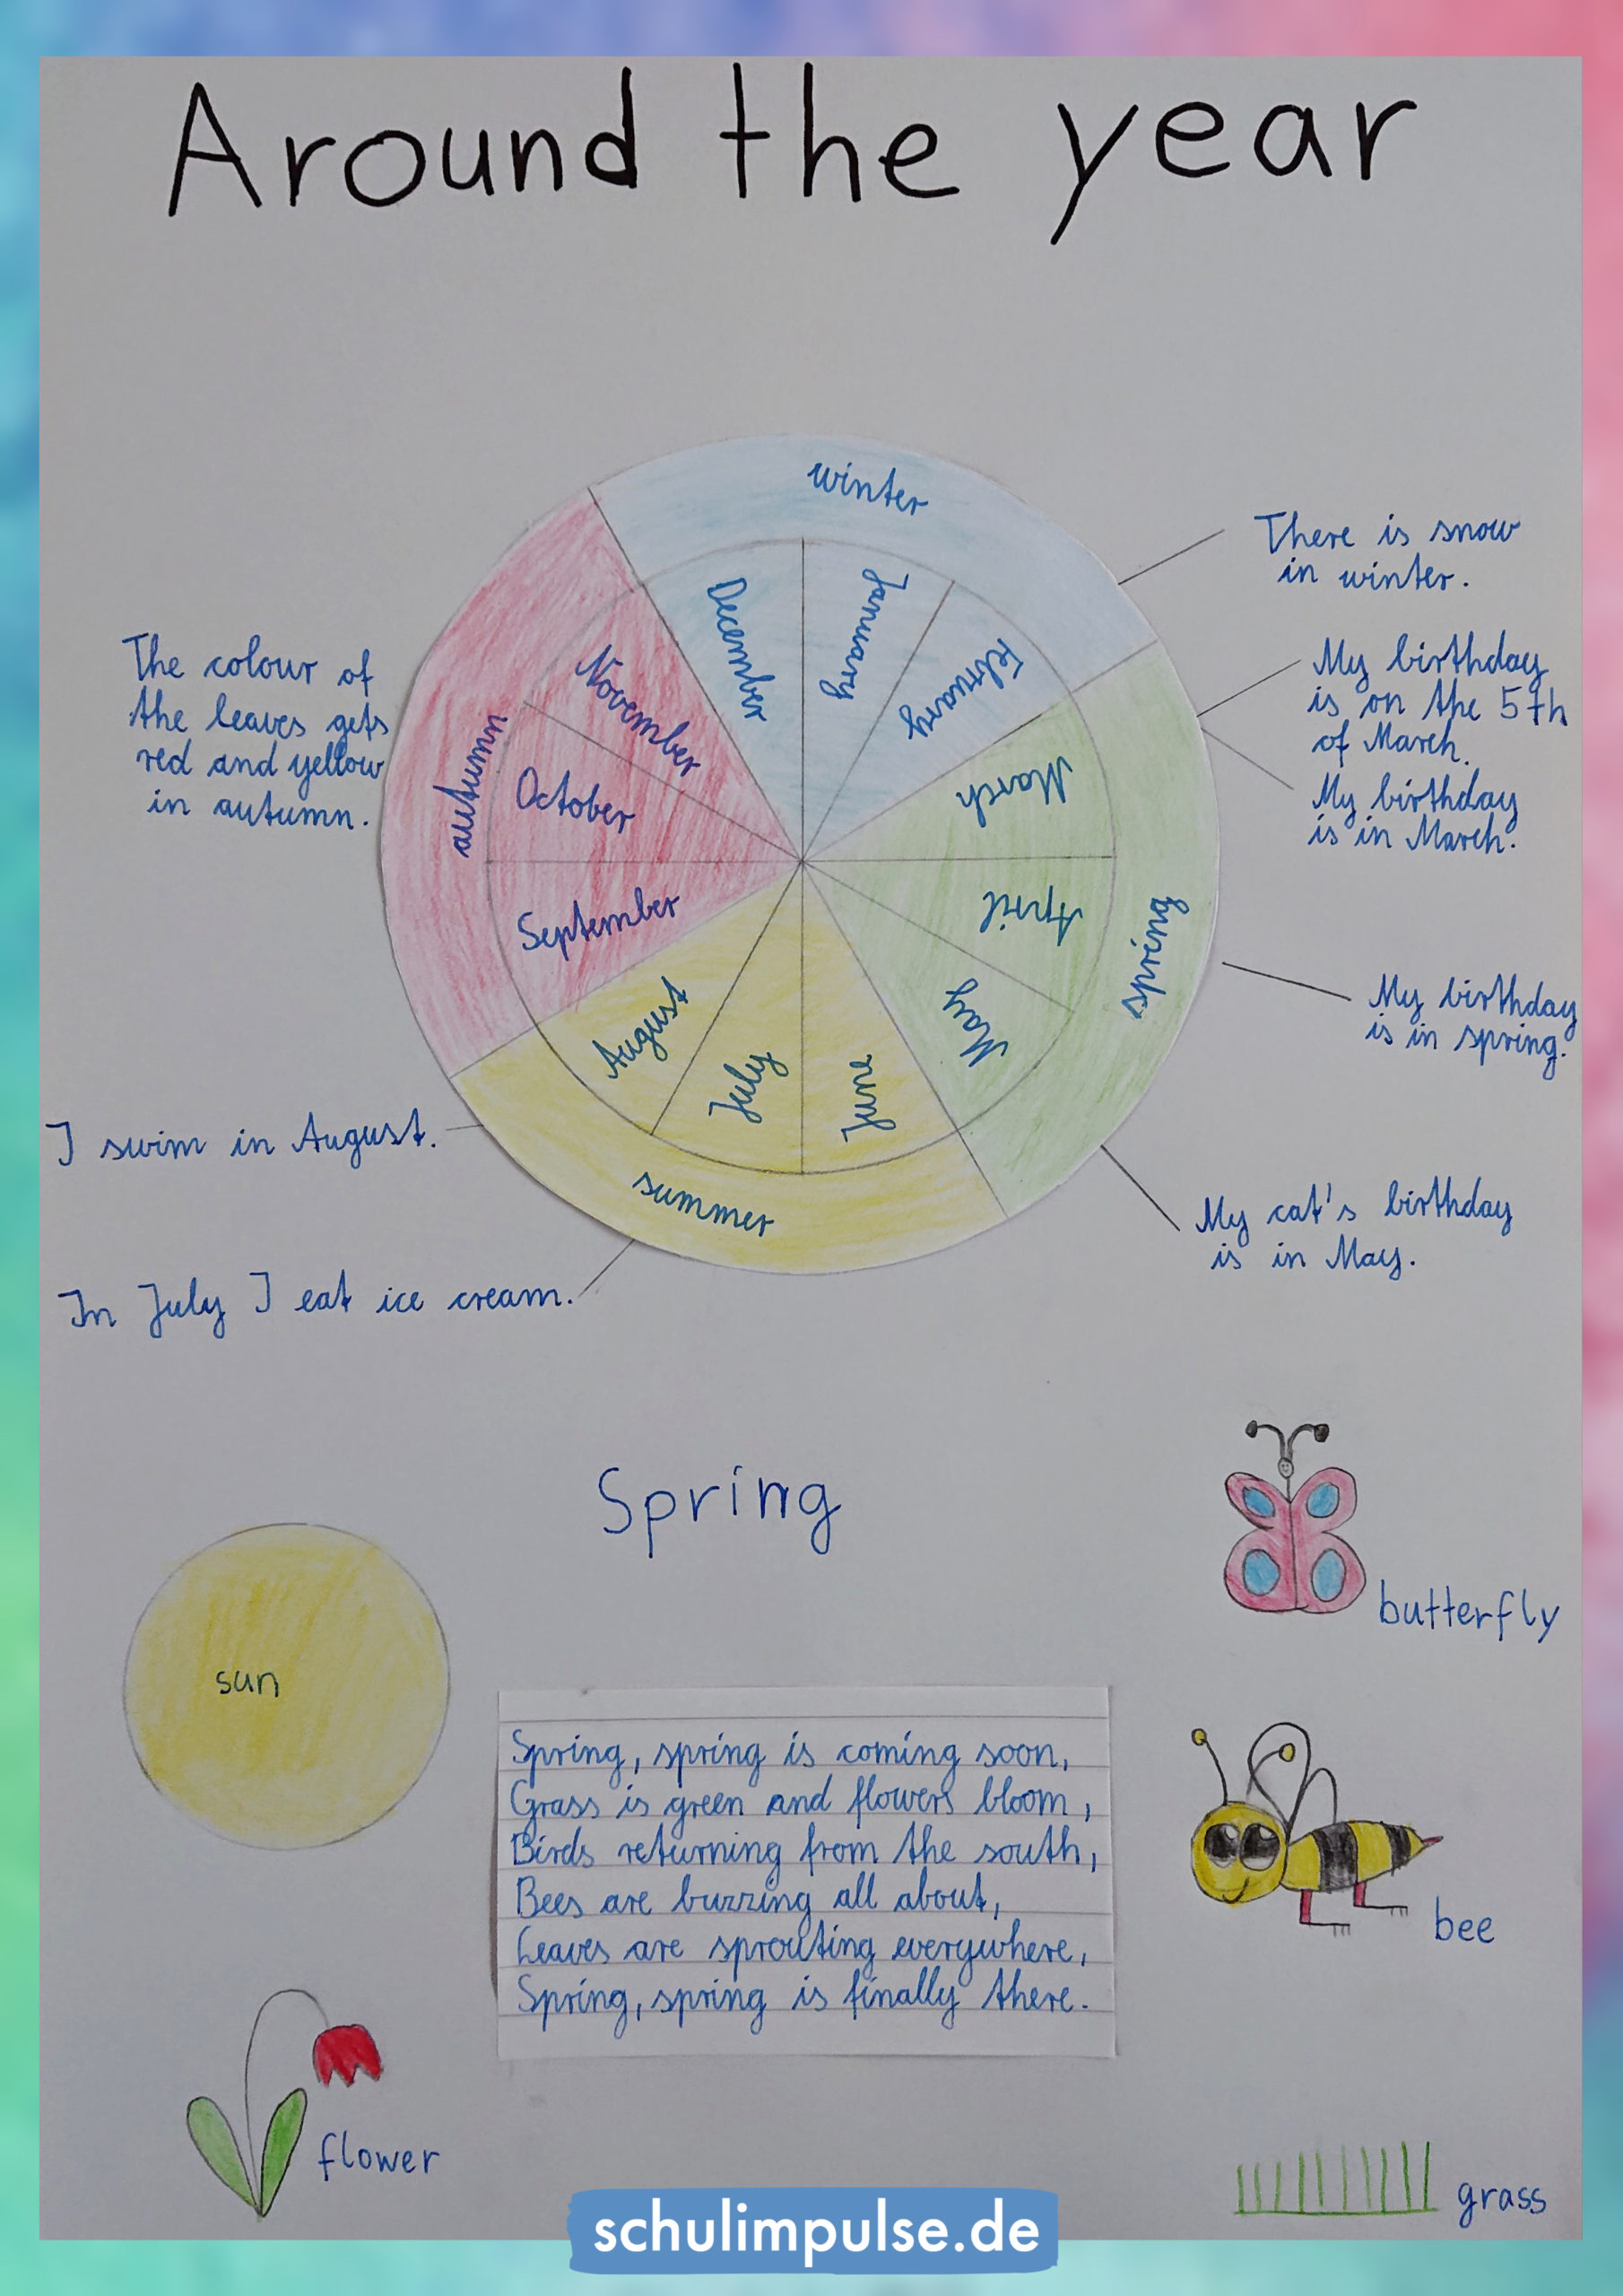 Around the year
winter
December
January
February
November
October
September
autumn
March
April
May
spring
August
July
June
summer
There is snow
in winter.
My birthday
is on the 5th
of March.
My birthday
is in March.
My birthday
is in spring.
My cat's birthday
is in May.
The colour of
the leaves gets
red and yellow
in autumn.
I swim in August.
In July I eat ice cream.
Spring
sun
butterfly
Spring, spring is coming soon,
Grass is green and flowers bloom,
Birds returning from the south,
Bees are buzzing all about,
Leaves are sprouting everywhere,
Spring, spring is finally there.
bee
flower
grass
schulimpulse.de